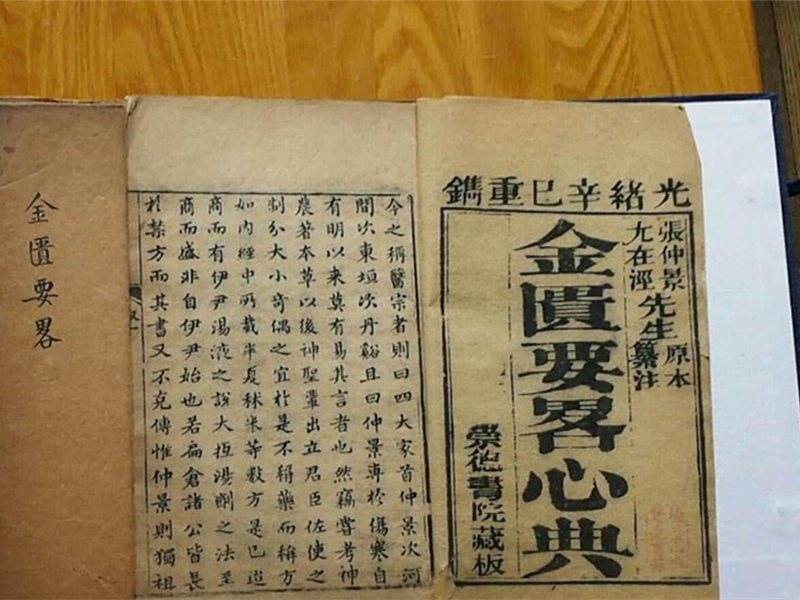 光緒辛巳重鐫
張仲景先生原本
尤在涇先生纂注
金匱要畧心典
崇德書院藏板
今之稱醫宗者則曰四大家首仲景次河
間次東垣次丹谿且曰仲景專於傷寒自
有明以來莫有易其言者也然竊嘗考神
農著本草以後神聖輩出立君臣佐使之
制分大小奇偶之宜於是不稱藥而稱方
如内經中所載半夏秫米等數方是已迨
商而有伊尹湯液之說大抵湯劑之法至
商而盛非自伊尹始也若扁倉諸公皆長
於禁方而其書又不克傳惟仲景則獨祖
金匱要畧